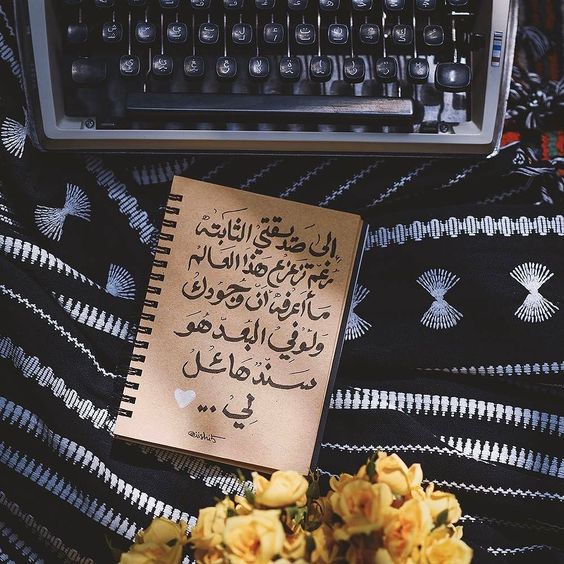 إلى صديقتي الثابتة
رغم تزعزع هذا العالم
ما أعرفه أن وجودك
ولو في البعد هو
سند هائل
لي ...